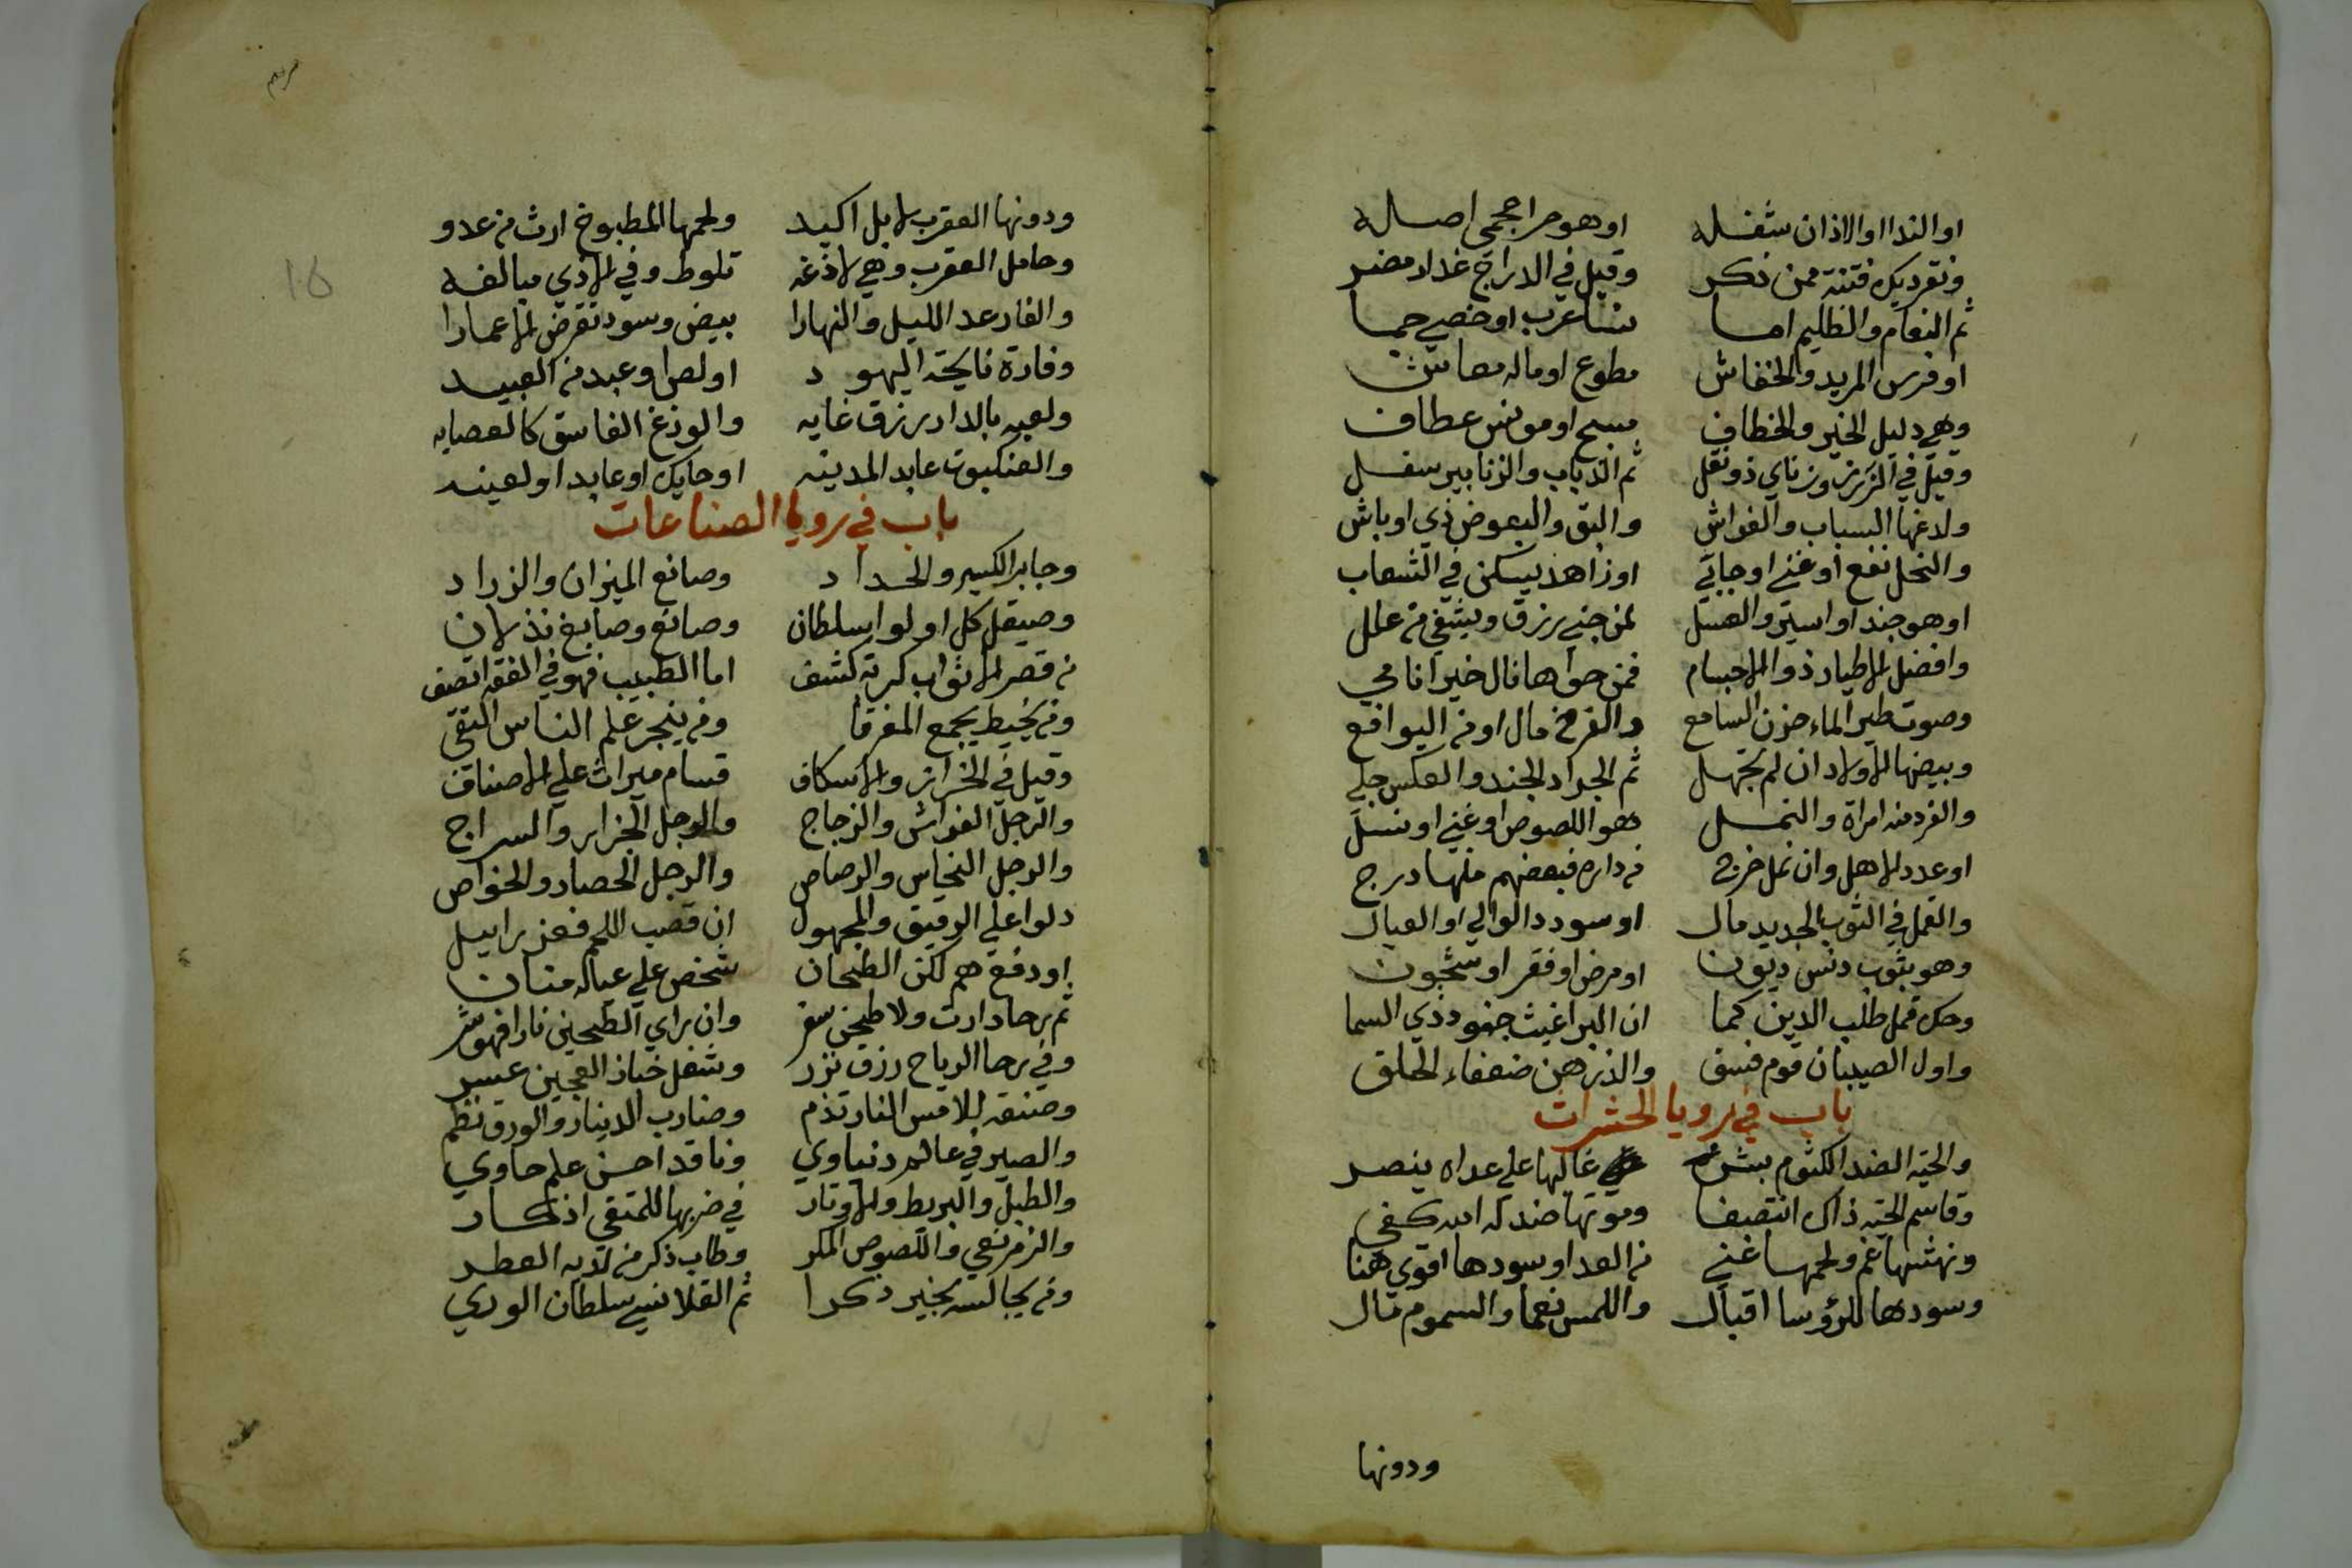 او الندا او الاذان شغله او هو حر اعجمي اصله
ونقر ديك فتنة ممن ذكر وقيل في الدراج غدار مضر
ثم النعام والظليم اما نسا عرب او خصي حما
او فرس المريد والخفاش مطوع او ماله معاش
وهي دليل الخير والخطاف مسبح او مونس عطاف
وقيل في الزرزور ناي ذو نقل ثم الذباب والزنابير سفل
ولدغها السباب والفواش والبق والبعوض ذي اوباش
والنحل نفع او غني او جاني او زاهد يسكن في الشعاب
او هو جند او اسير والعسل لمن جني رزق ويشفي من علل
وافضل الاطيار ذو الاجسام فمن حواها نال خيرا نامي
وصوت طير الماء حزن السامع والفرخ مال او من اليوافع
وبيضها الاولاد ان لم تجهل ثم الجراد الجند والعكس جلي
والفرد منه امراة والنمل هو اللصوص او غني او نسل
او عدد الاهل وان نمل خرج من داره فبعضهم منها درج
والقمل في الثوب الجديد مال او سودد الوالي او العيال
وهو بثوب دنس ديون او مرض او فقر او سجون
وحك قمل طلب الدين كما ان البراغيث جنود ذي السما
واول الصيبان قوم فسق والذر هن ضعفاء الخلق
باب في رويا الحشرات
والحية الضد الكتوم بشر غالبها علي عداه ينصر
وقاسم الحية ذاك انتصفا وموتها ضد له الله كفي
ونهشها غم ولحمها غني من العدا وسودها اقوي هنا
وسودها للرؤسا اقبال واللمس نعما والسموم مال
ودونها
ودونها العقرب لا بل اكيد ولحمها المطبوخ ارث من عدو
وحامل العقرب وهي لادغه تلوط وفي الاذي مبالغه
والفار عد الليل والنهارا بيض وسود تقرض الاعمارا
وفارة نايحة اليهود او لص او عبد من العبيد
ولعبه بالدار رزق غايه والوزغ الفاسق كالعصايه
والعنكبوت عابد المدينه او حايك او عابد او لعينه
باب في رويا الصناعات
وجابر الكسر والحداد وصانع الميزان والزراد
وصيقل كل اولو اسلطان وصانع وصابغ نذلان
من قصر الاثواب كربة كشف اما الطبيب فهو في الفقه اتصف
ومن يخيط يجمع المفرقا ومن ينجر علم الناس التقي
وقيل في الخراز والاسكاف قسام ميراث علي الاصناف
والرجل الفواش والزجاج والرجل الجزار والسراج
والرجل النحاس والرصاص والرجل الحصار والخواص
دلوا علي الرقيق والمجهول ان قصب اللحم فعزراييل
او دفع هم لكن الطحان شخص علي عياله منان
ثم رحا دارت ولا طحين سفر وان راي الطحين نارا فهو شر
وفي رحا الرياح رزق نزر وشغل خباز العجين عسر
وصنعه بلا مس النار تذم وضارب الدينار والورق نظم
والصيرفي عالم دنياوي وناقد احسن علم حاوي
والطبل والبربط والاوتار في ضربها للمتقي اذكار
والزمر نعي واللصوص المكر وطاب ذكر من لديه العطر
ومن يجالسه بخير ذكرا ثم القلانسي سلطان الوري